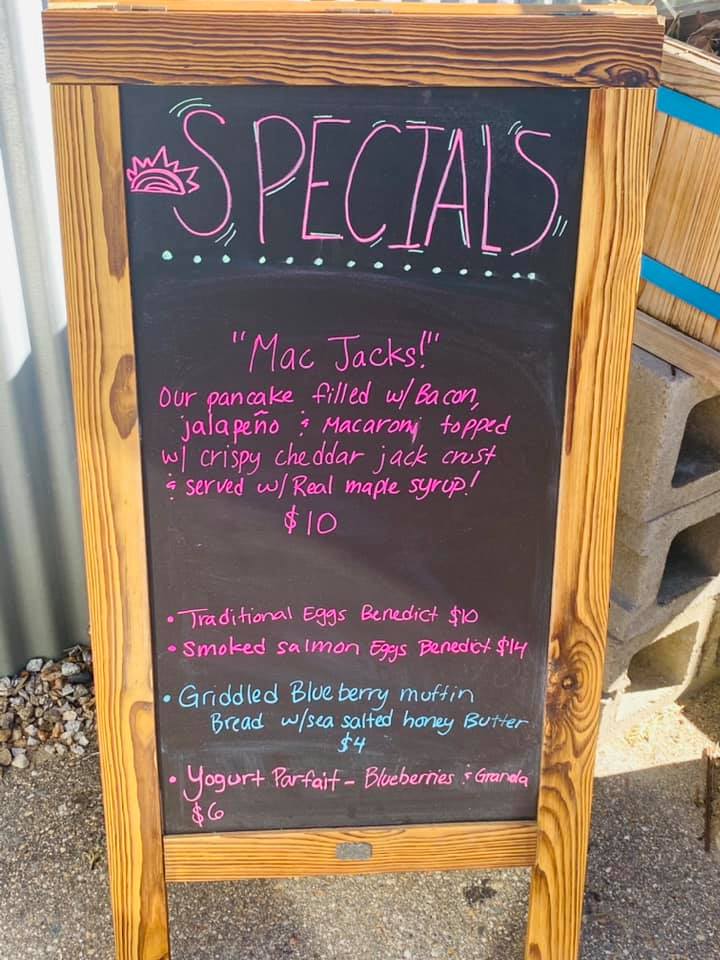 SPECIALS
"Mac Jacks!"
Our pancake filled w/ Bacon,
jalapeño & Macaroni topped
w/ crispy cheddar jack crust
& served w/ Real maple syrup!
$10
• Traditional Eggs Benedict $10
• Smoked salmon Eggs Benedict $14
• Griddled Blueberry muffin
Bread w/sea salted honey Butter
$4
• Yogurt Parfait - Blueberries & Granola
$6